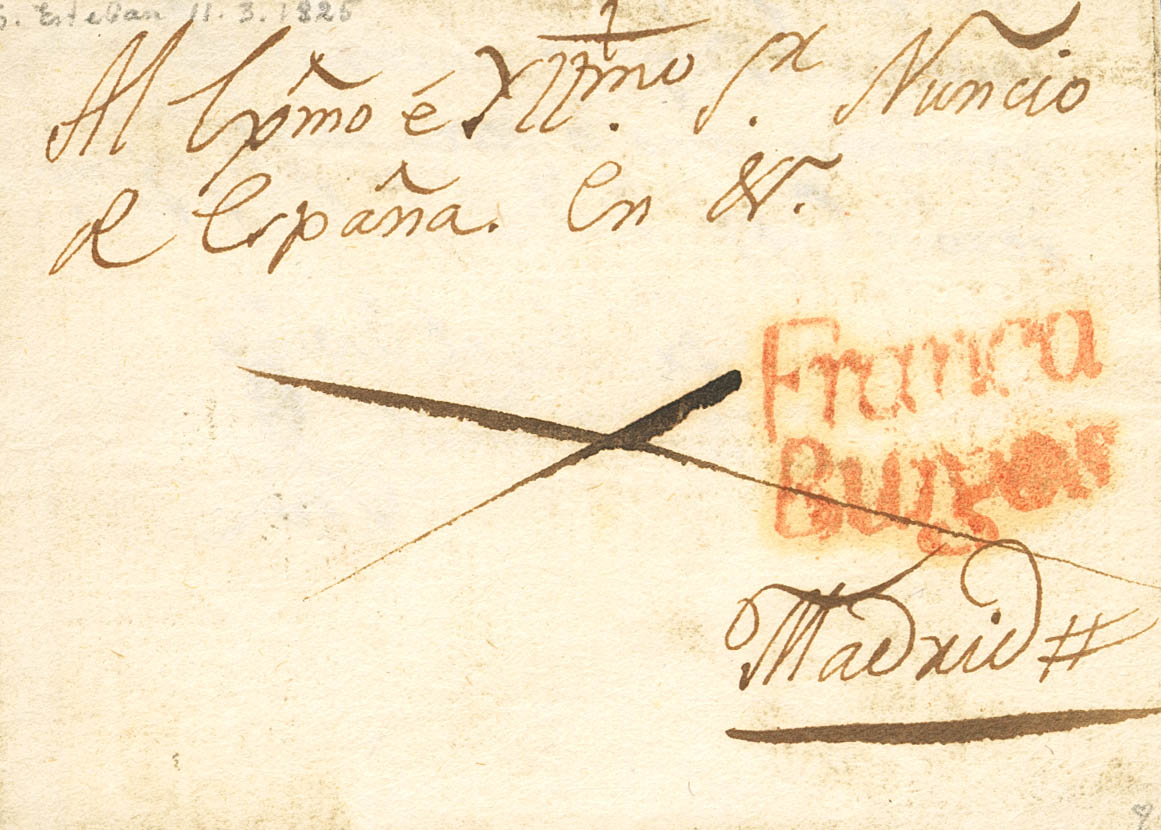 S. Esteban 11.3.1825
Al Exmo é Yllmo. Sr. Nuncio
de España. En &.
Franca
Burgos
Madrid